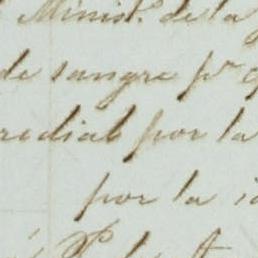 Minist.º de la
de sangre p.r
redial por la
por la